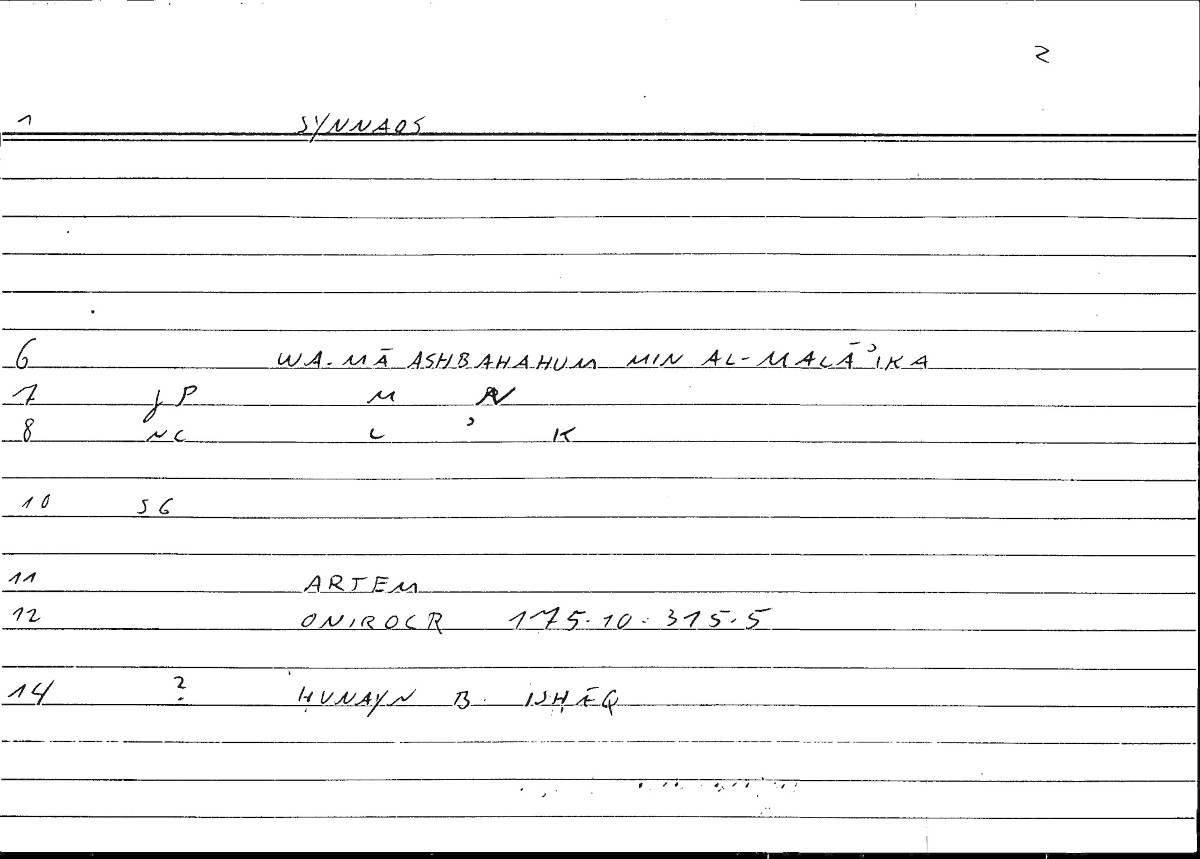 2
1 SYNNAOS
6 WA-MĀ ASHBAHAHUM MIN AL-MALĀʾIKA
7 JP M N
8 NC L ʾ K
10 SG
11 ARTEM
12 ONIROCR 175.10.315.5
14 ? ḤUNAYN B. ISḤĀQ